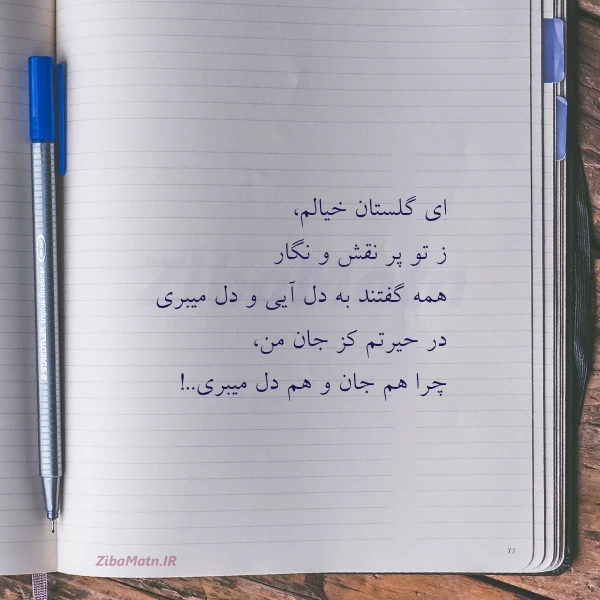 ای گلستان خیالم،
ز تو پر نقش و نگار
همه گفتند به دل آیی و دل میبری
در حیرتم کز جان من،
چرا هم جان و هم دل میبری..!
ZibaMatn.IR
77